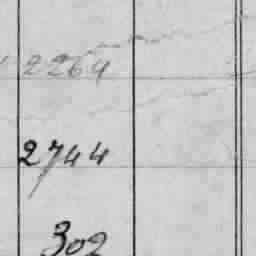 2264
2744
302